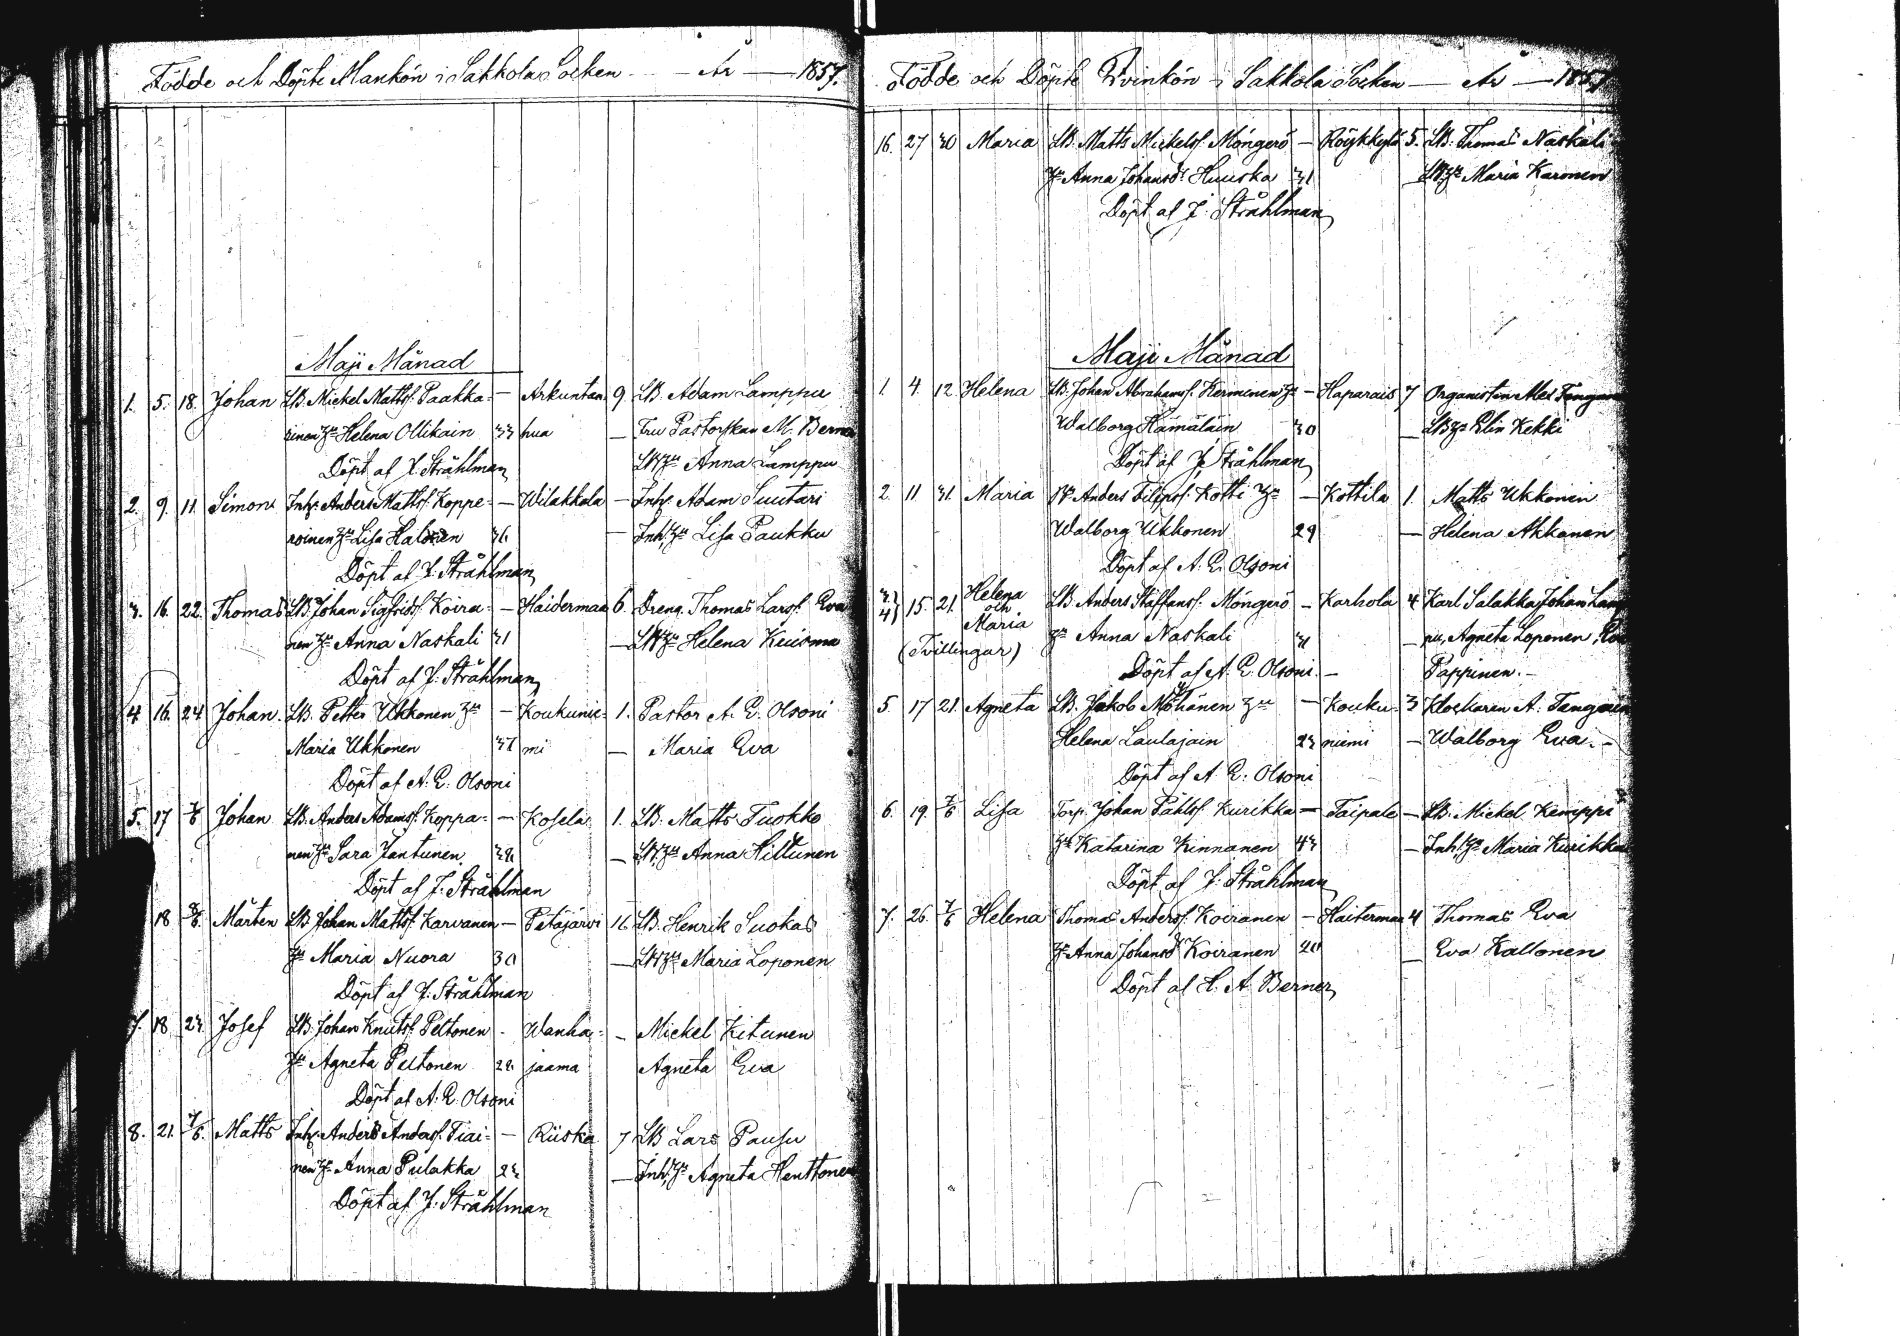 Födde och Döpte Mankön i Sakkola Socken — År — 1857.
Maji Månad
1. 5. 18. Johan LB. Mickel Matts f. Paakka= — Arkuntan 9 LB. Adam Lamppu
rinen Hu Helena Ollikain 33 hua — Fru Pastorskan M. Berner
Döpt af J. Stråhlman LB Hu Anna Lamppu
2. 9. 11. Simon Inh. Anders Matts f. Koppe= — Wilakkala — Inh. Adam Suutari
roinen Hu Lisa Halonen 36 — Inh. Hu Lisa Paukku
Döpt af J. Stråhlman
3. 16. 22. Thomas LB. Johan Sigfrids f. Koira= — Haiderman 6. Dreng. Thomas Lars f. Eva
nen Hu Anna Naskali 31 — LB Hu Helena Kuisma
Döpt af J. Stråhlman
4. 16. 24 Johan. LB. Petter Ukkonen Hu — Koukunie= 1. Pastor A. E. Olsoni
Maria Ukkonen 37 mi — Maria Eva
Döpt af A. E. Olsoni
5. 17 7/6 Johan LB. Anders Adams f. Koppa= — Kosela 1. LB. Matts Tuokko
nen Hu Sara Jantunen 38 — LB. Hu Anna Hiltunen
Döpt af J. Stråhlman
18 Mårten LB. Johan Matts f. Karvanen — Petäjärvi 16 LB. Henrik Suokas
Hu Maria Nuora 30 — LB Hu Maria Loponen
Döpt af J. Stråhlman
7. 18 23. Josef LB. Johan Knuts f. Peltonen - Wanha= — Mickel Kitunen
Hu Agneta Peltonen 28 jaama Agneta Eva
Döpt af A. E. Olsoni
8. 21. 7/6. Matts Inh. Anders Anders f. Tiai= — Riiska 7 LB Lars Pausu
nen Hu Anna Pulakka 23 — Inh. Hu Agneta Henttonen
Döpt af J. Stråhlman
Födde och Döpte Qvinkön i Sakkola Socken — År — 1857
16. 27 30 Maria LB. Matts Mickels f. Möngerö — Röykkylä 5. LB. Thomas Naskali
Hu Anna Johansdr Huuska 31 — LB Hu Maria Karonen
Döpt af J. Stråhlman
Maji Månad
1. 4 12 Helena LB. Johan Abrahams f. Kerminen Hu — Haparais 7 Organisten Alex Tengman
Walborg Hämäläin 30 — LB Hu Elin Kekki
Döpt af J. Stråhlman
2. 11 31. Maria Anders Filips f. Kotti Hu — Kottila 1. Matts Ukkonen
Walborg Ukkonen 29 — Helena Akkanen
Döpt af A. E. Olsoni
3) 4) 15. 21. Helena och Maria LB Anders Staffans f. Möngerö — Karhola 4 Karl Salakka, Johan Lamp
(Tvillingar) Hu Anna Naskali 31 — pu, Agneta Loponen, Eva
Döpt af A. E. Olsoni. — Pappinen. -
5. 17 21. Agneta LB. Jakob Möliänen Hu — Kouku- 3 Klockaren A. Tengman
Helena Laulajain 23 niemi — Walborg Eva. -
Döpt af A. E. Olsoni
6. 19. 7/6 Lisa Torp. Johan Påhls f. Kurikka — Taipale — LB. Mickel Kemppi
Hu Katarina Kinnanen 43 — Inh. Hu Maria Kurikka
Döpt af J. Stråhlman
7. 26. 7/6 Helena Thomas Anders f. Koiranen — Haiterman 4 Thomas Eva
Hu Anna Johansdr Koiranen 20 — Eva Kallonen
Döpt af H. A. Berner